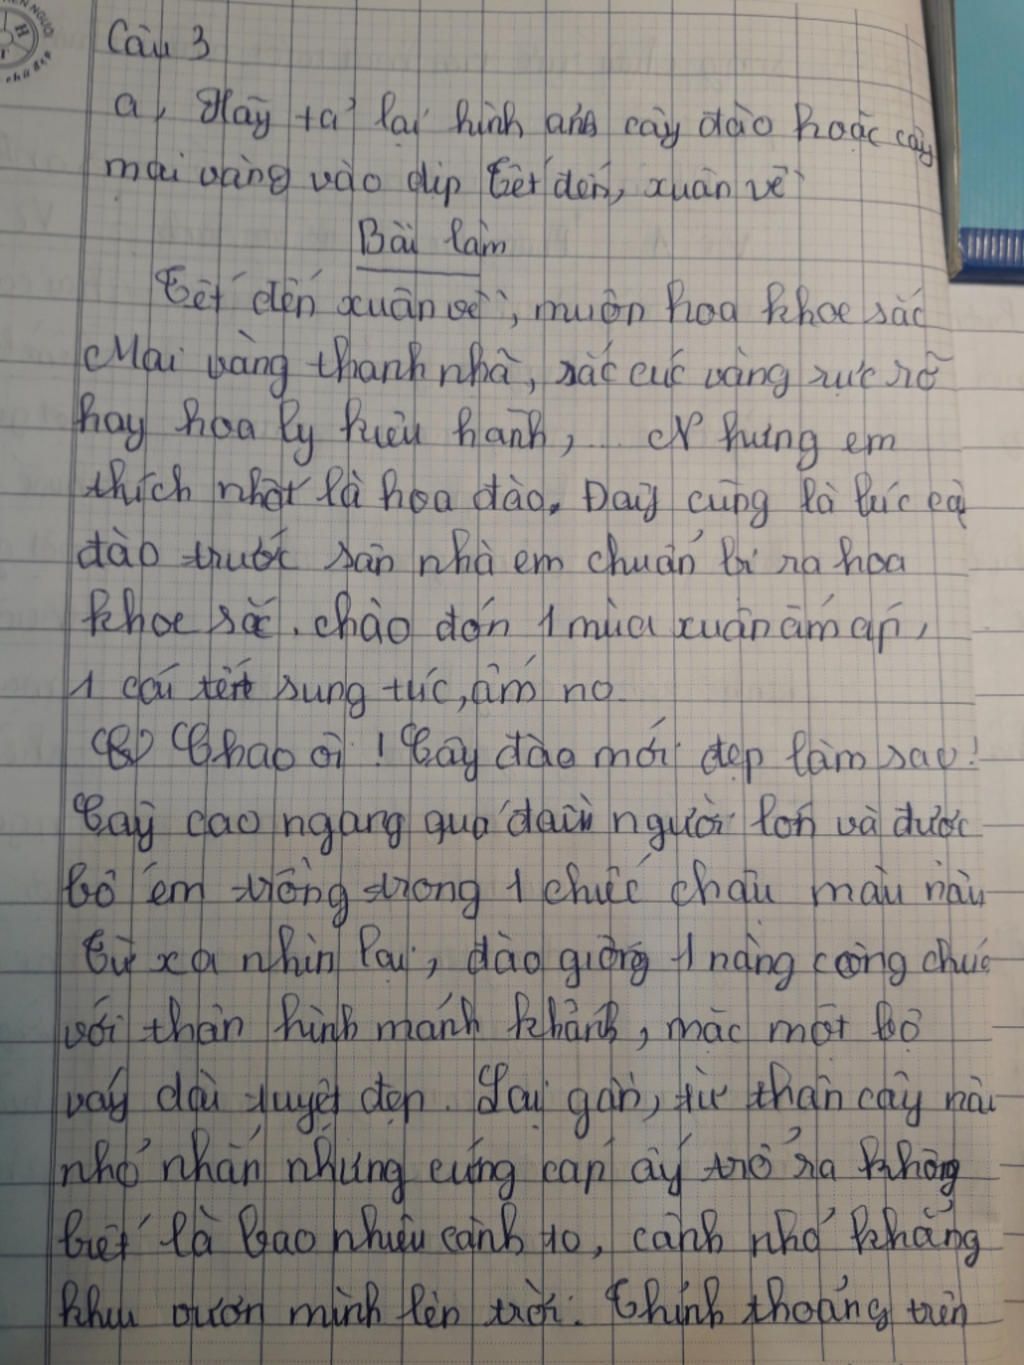 NGƯỜI
chữ đẹp
Câu 3
a, Hãy tả lại hình ảnh cây đào hoặc cây
mai vàng vào dịp Tết đến, xuân về
Bài làm
Tết đến xuân về, muôn hoa khoe sắc
Mai vàng thanh nhã, sắc cúc vàng rực rỡ
hay hoa ly kiêu hãnh,... Nhưng em
thích nhất là hoa đào. Đây cũng là lúc cây
đào trước sân nhà em chuẩn bị ra hoa
khoe sắc, chào đón 1 mùa xuân ấm áp,
1 cái tết sung túc, ấm no
Chao ôi! Cây đào mới đẹp làm sao!
Cây cao ngang quá đầu người lớn và được
bố em trồng trong 1 chiếc chậu màu nâu
Từ xa nhìn lại, đào giống 1 nàng công chúa
với thân hình mảnh khảnh, mặc một bộ
váy dài tuyệt đẹp. Lại gần, từ thân cây nâu
nhỏ nhắn nhưng cứng cáp ấy trổ ra không
biết là bao nhiêu cành to, cành nhỏ khẳng
khiu vươn mình lên trời. Thỉnh thoảng trên